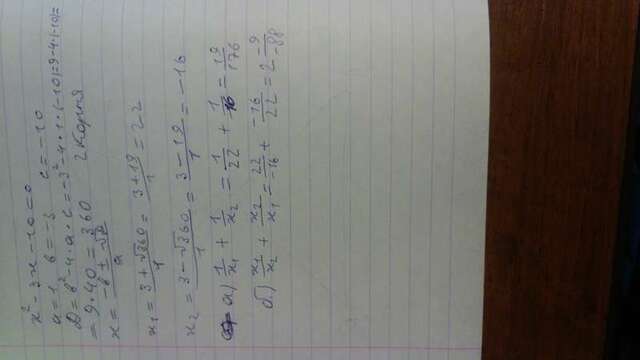 x² - 3x - 10 = 0
a = 1 b = -3 c = -10
D = b² - 4·a·c = -3² - 4·1·(-10) = 9 - 4·(-10) =
= 9·40 = 360 2 корня
x = (-b ± √D)/a
x₁ = (3 + √360)/1 = (3 + 19)/1 = 22
x₂ = (3 - √360)/1 = (3 - 19)/1 = -16
а) 1/x₁ + 1/x₂ = 1/22 + 1/16 = 19/176
б) x₁/x₂ + x₂/x₁ = 22/-16 + -16/22 = 2 -9/-88